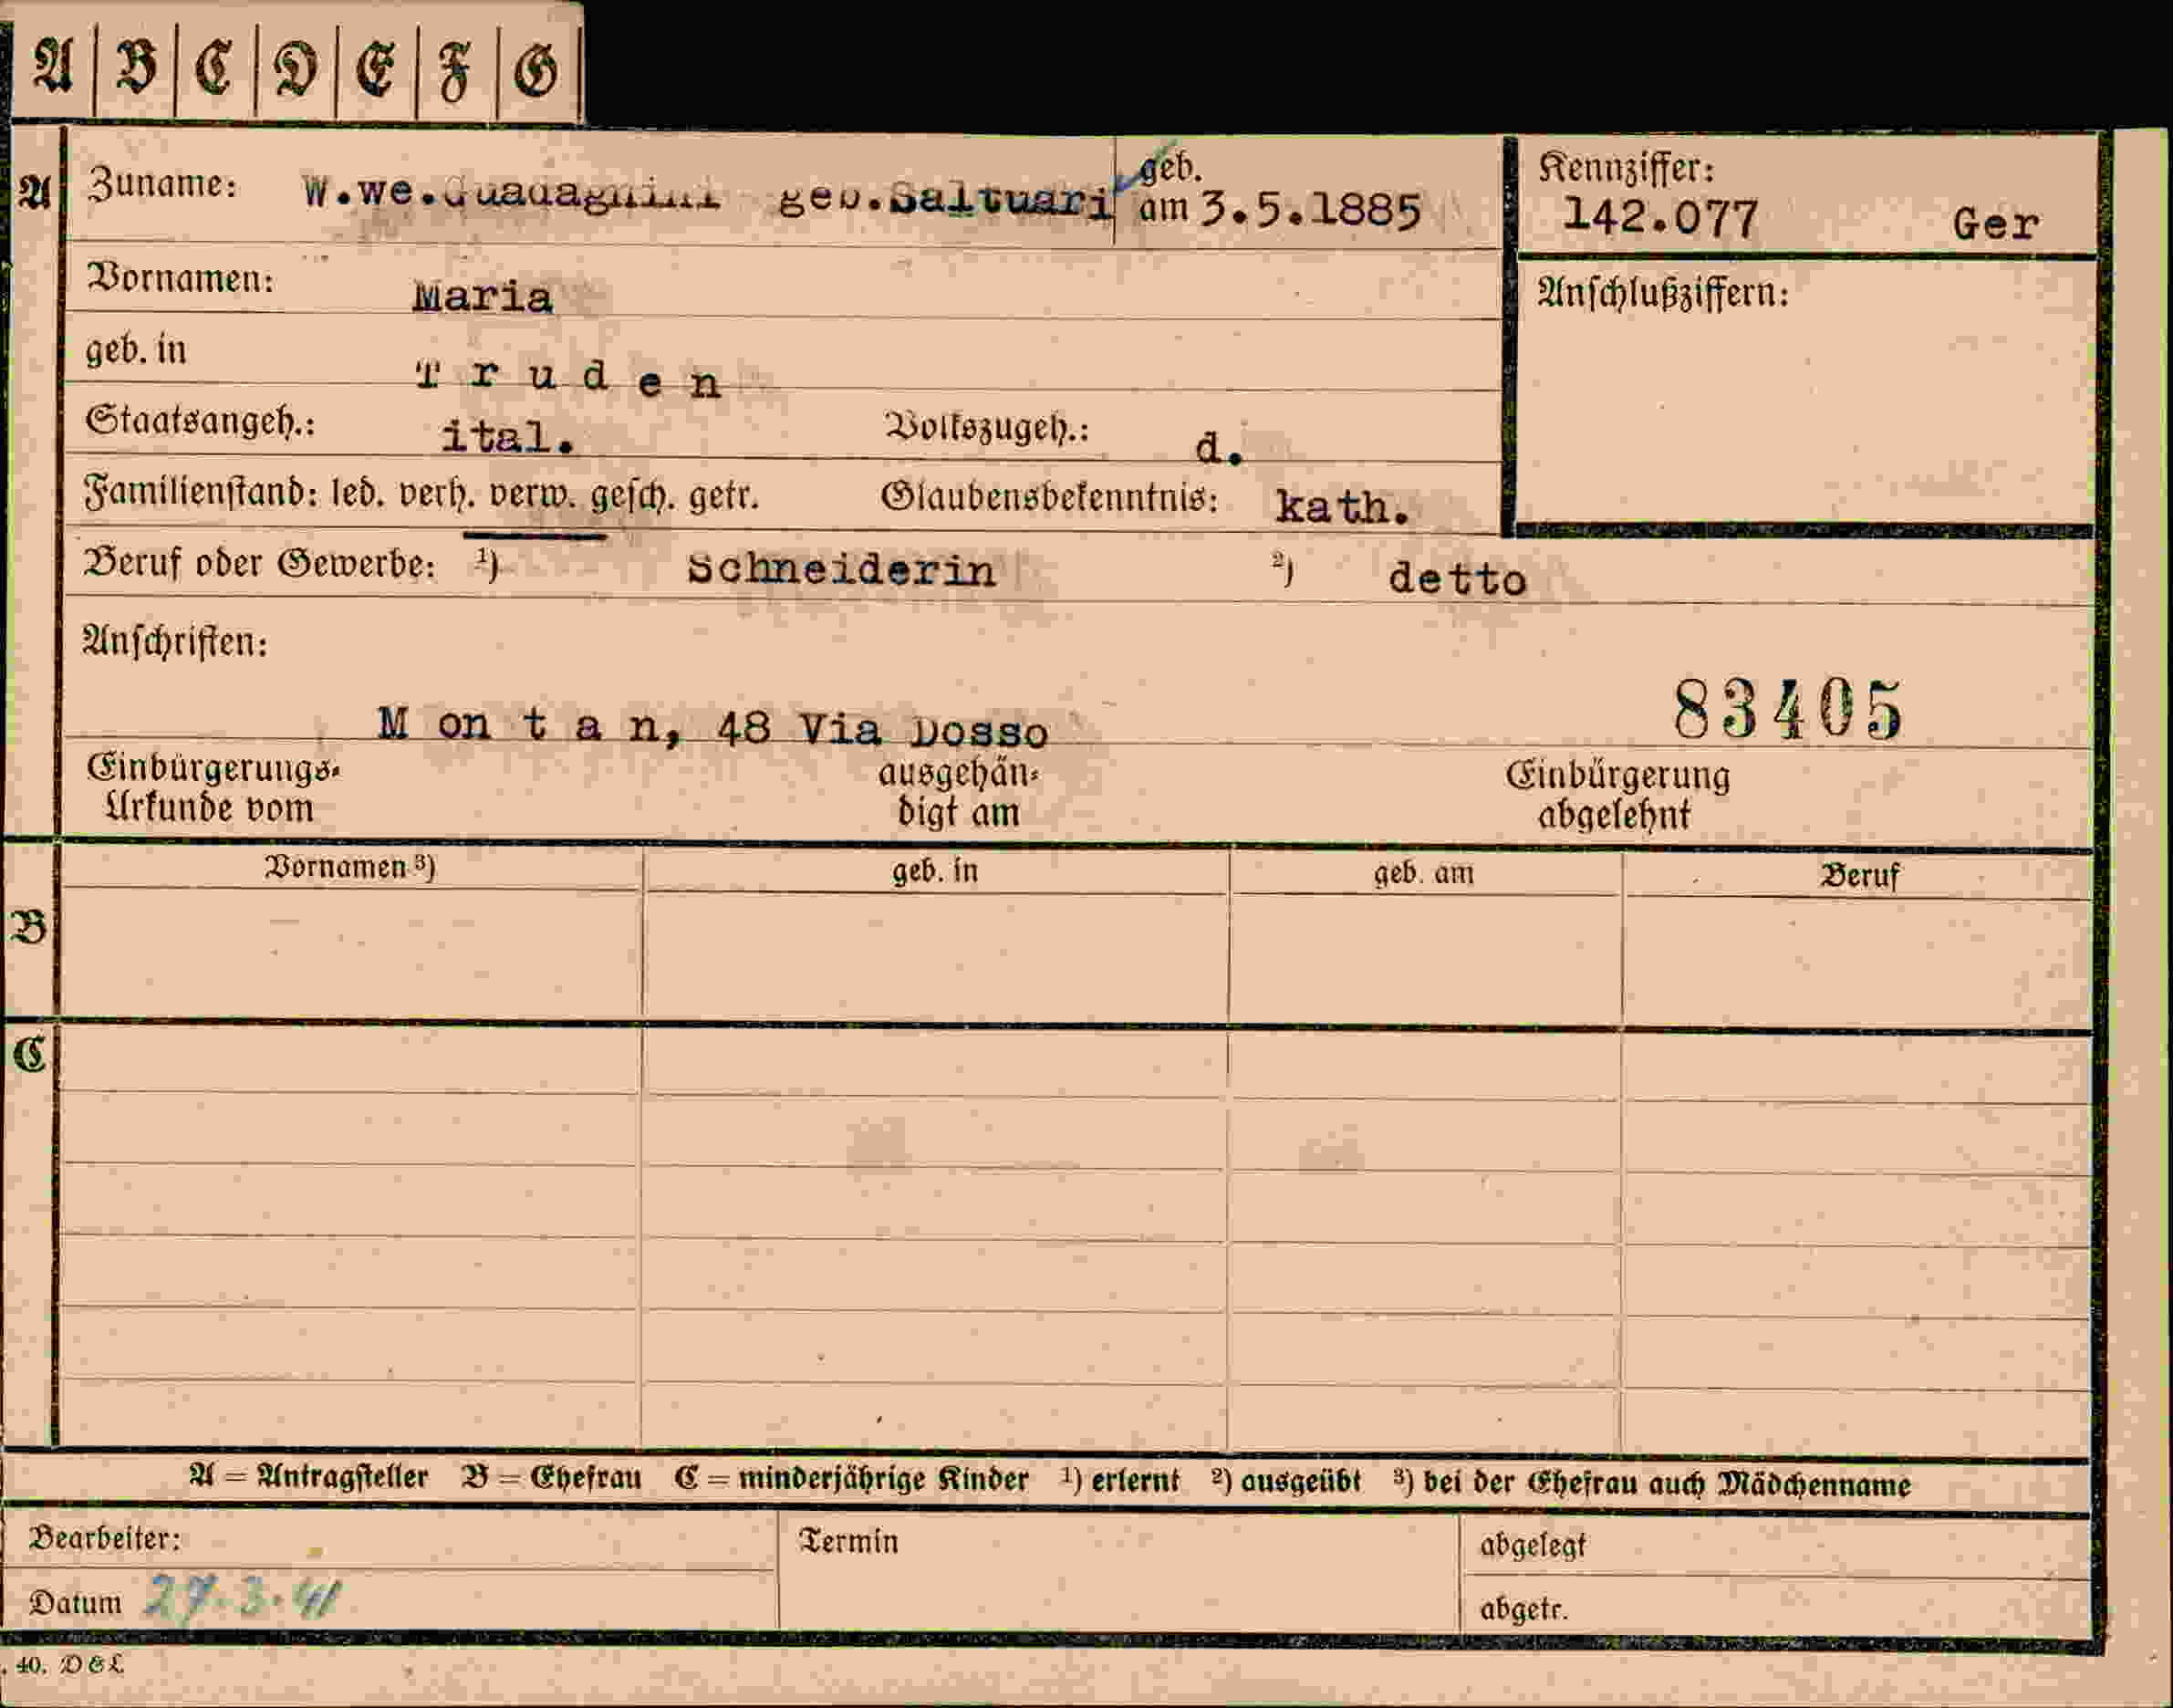 A B C D E F G
A Zuname: W.we.Guadagnini geb.Saltuari geb. am 3.5.1885 Kennziffer: 142.077 Ger
Vornamen: Maria Anschlußziffern:
geb. in T r u d e n
Staatsangeh.: ital. Volkszugeh.: d.
Familienstand: led. verh. verw. gesch. getr. Glaubensbekenntnis: kath.
Beruf oder Gewerbe: ¹) Schneiderin ²) detto
Anschriften:
83405
M on t a n, 48 Via Dosso
Einbürgerungs- ausgehän- Einbürgerung
Urkunde vom digt am abgelehnt
Vornamen ³) geb. in geb. am Beruf
B
C
A = Antragsteller B = Ehefrau C = minderjährige Kinder ¹) erlernt ²) ausgeübt ³) bei der Ehefrau auch Mädchenname
Bearbeiter: Termin abgelegt
Datum 27.3.41 abgetr.
. 40. D &